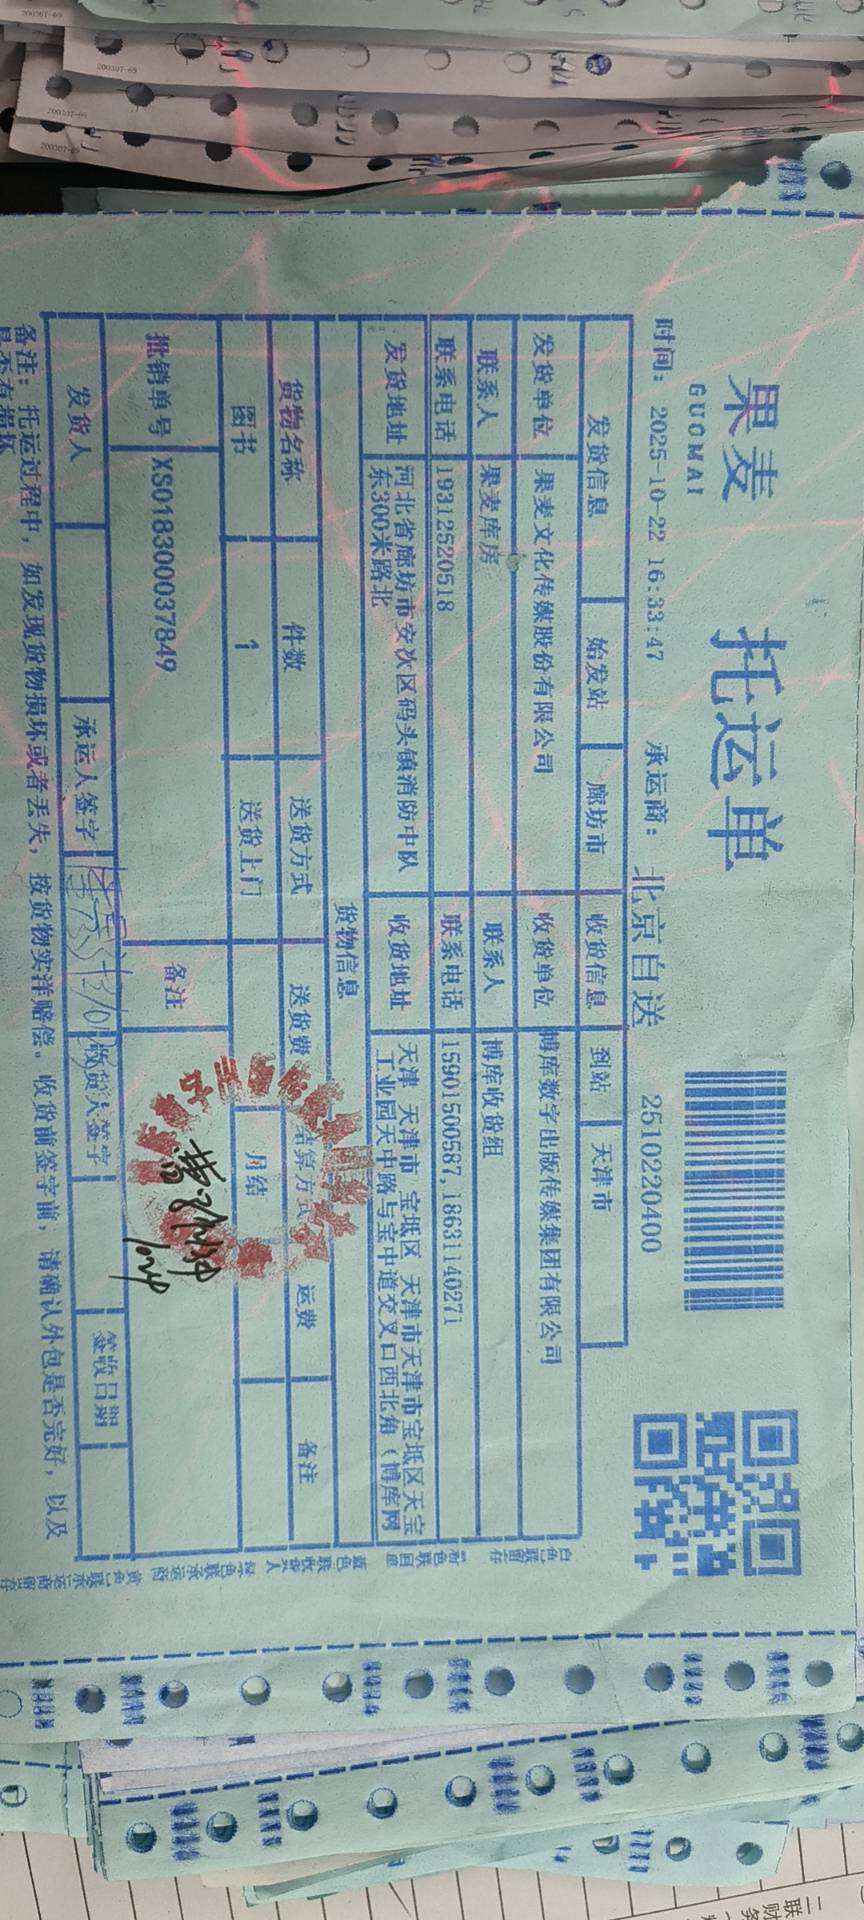 果麦
GUOMAI
托运单
2510220400
时间: 2025-10-22 16:33:47 承运商: 北京自送
发货信息 始发站 廊坊市 收货信息 到站 天津市
发货单位 果麦文化传媒股份有限公司 收货单位 博库数字出版传媒集团有限公司
联系人 果麦库房 联系人 博库收货组
联系电话 19312520518 联系电话 15901500587,18631140271
发货地址 河北省廊坊市安次区码头镇消防中队东300米路北 收货地址 天津 天津市 宝坻区 天津市天津市宝坻区天宝工业园天中路与宝中道交叉口西北角（博库网
货物信息
货物名称 件数 送货方式 送货费 结算方式 运费 备注
图书 1 送货上门 月结
批销单号 XS018300037849 备注
发货人 承运人签字 收货人签字 签收日期
备注: 托运过程中, 如发现货物损坏或者丢失, 按货物实洋赔偿。收货前签字前, 请确认外包是否完好, 以及
是否有损坏
白色联留存 粉色联回单 蓝色联收货人 绿色联承运商 黄色联承运商留存
200307-69
200307-69
200307-69
200307-69